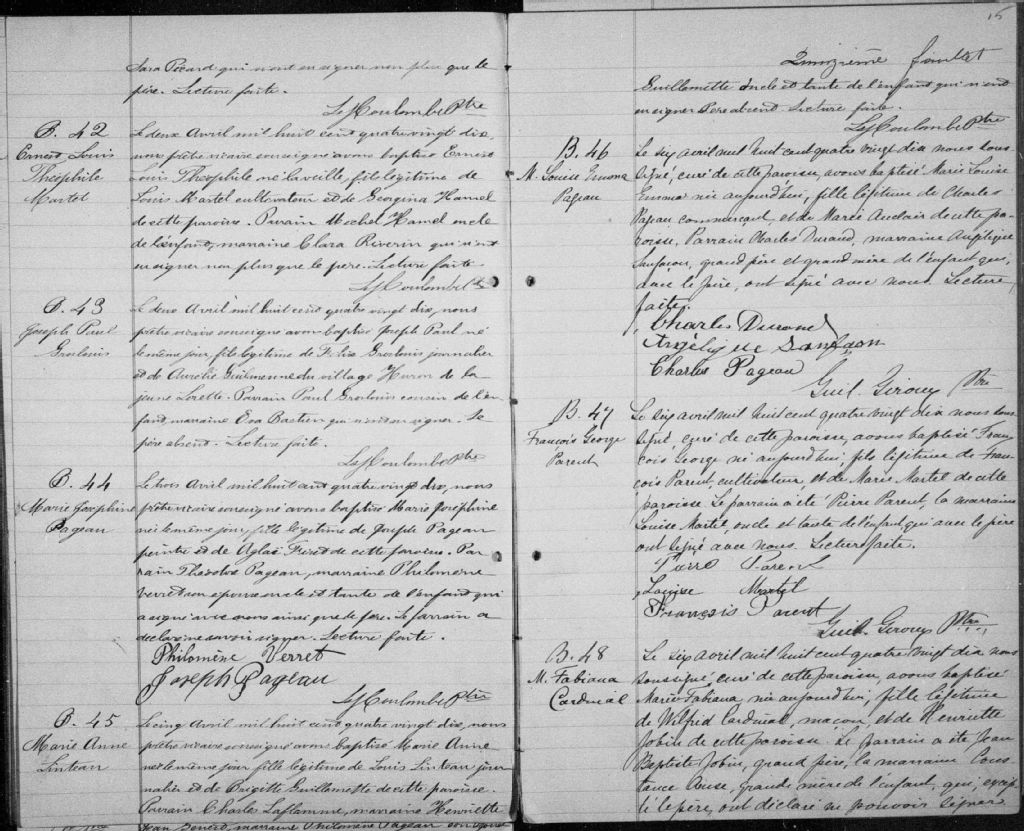 Sara Picard qui n'ont su signer non plus que le
père. Lecture faite.
Ls. J. Coulombe Ptre
B. 42
Ernest Louis
Théophile
Martel
Le deux Avril mil huit cent quatre vingt dix,
nous prêtre vicaire soussigné avons baptisé Ernest
Louis Théophile né la veille, fils légitime de
Louis Martel cultivateur et de Georgina Hamel
de cette paroisse. Parrain Michel Hamel oncle
de l'enfant, marraine Clara Riverin qui n'ont
su signer non plus que le père. Lecture faite
Ls. J. Coulombe Ptre
B. 43
Joseph Paul
Groslouis
Le deux Avril mil huit cent quatre vingt dix, nous
prêtre vicaire soussigné avons baptisé Joseph Paul né
le même jour, fils légitime de Félix Groslouis journalier
et de Aurélie du village Huron de la
jeune Lorette. Parrain Paul Groslouis cousin de l'en-
fant, marraine Eva Bastien qui n'ont su signer. Le
père absent. Lecture faite.
Ls. J. Coulombe Ptre
B. 44
Marie Josephine
Pageau
Le trois Avril mil huit cent quatre vingt dix, nous
prêtre vicaire soussigné avons baptisé Marie Joséphine
née le même jour, fille légitime de Joseph Pageau
peintre et de Aglaé de cette paroisse. Par-
rain Théodore Pageau, marraine Philomène
Verret son épouse oncle et tante de l'enfant qui
a signé avec nous ainsi que le père. Le parrain a
déclaré ne savoir signer. Lecture faite.
Philomène Verret
Joseph Pageau
Ls. J. Coulombe Ptre
B. 45
Marie Anne
Linteau
Le cinq Avril mil huit cent quatre vingt dix, nous
prêtre vicaire soussigné avons baptisé Marie Anne
née le même jour fille légitime de Louis Linteau jour-
nalier et de Brigitte Guillemette de cette paroisse.
Parrain Charles Laflamme, marraine Henriette
15
Quinzième feuillet
Guillemette oncle et tante de l'enfant qui n'ont
su signer. Père absent. Lecture faite.
Ls. J. Coulombe Ptre
B. 46
M. Louise Emma
Pageau
Le six avril mil huit cent quatre vingt dix nous sous-
signé, curé de cette paroisse, avons baptisé Marie Louise
Emma née aujourd'hui, fille légitime de Charles
Pageau commerçant, et de Marie Auclair de cette pa-
roisse. Parrain Charles Durand, marraine Angélique
Sanfaçon, grand père et grand mère de l'enfant qui,
avec le père, ont signé avec nous. Lecture
faite.
Charles Durand
Angélique Sanfaçon
Charles Pageau
Guil. Giroux Ptre
B. 47
François George
Parent
Le six avril mil huit cent quatre vingt dix nous sous-
signé, curé de cette paroisse, avons baptisé Fran-
çois George né aujourd'hui, fils légitime de Fran-
çois Parent, cultivateur, et de Marie Martel de cette
paroisse. Le parrain a été Pierre Parent, la marraine
Louise Martel, oncle et tante de l'enfant, qui avec le père
ont signé avec nous. Lecture faite.
Pierre Parent
Louise Martel
François Parent
Guil. Giroux Ptre
B. 48
M. Fabiana
Cardinal
Le six avril mil huit cent quatre vingt dix nous
soussigné, curé de cette paroisse, avons baptisé
Marie Fabiana, née aujourd'hui, fille légitime
de Wilfrid Cardinal, maçon, et de Henriette
Jobin de cette paroisse. Le parrain a été Jean
Baptiste Jobin, grand père, la marraine Cons-
tance, grande mère de l'enfant, qui, excep-
té le père, ont déclaré ne pouvoir signer